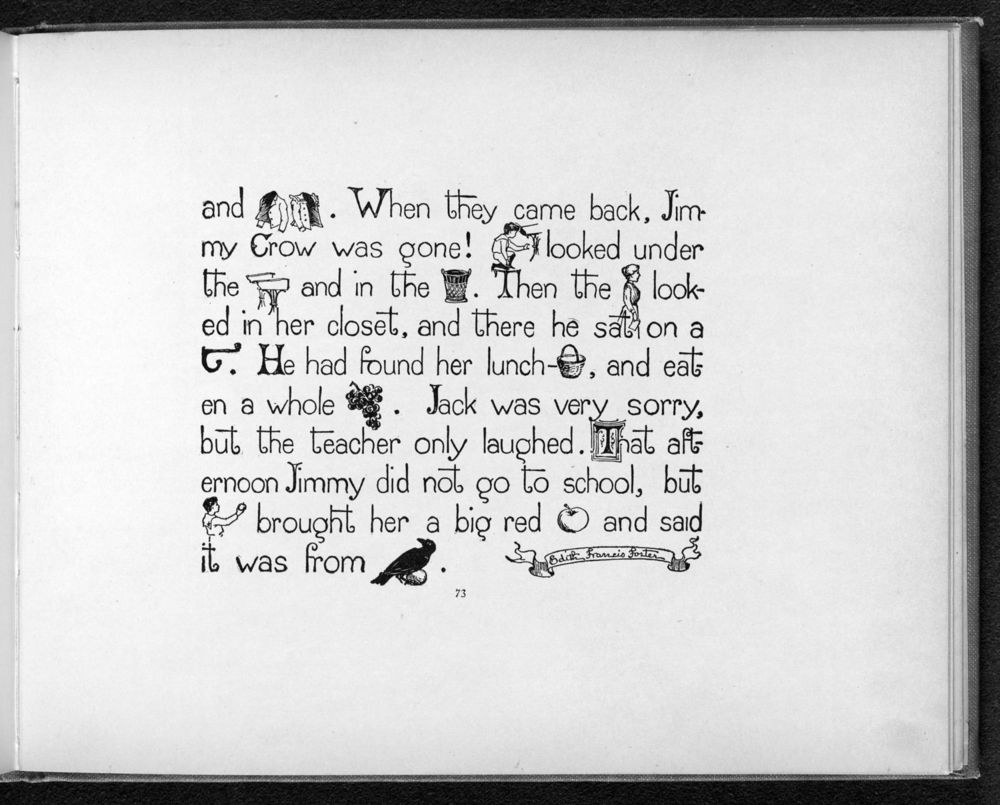 and . When they came back, Jim-
my Crow was gone! looked under
the and in the . Then the look-
ed in her closet, and there he sat on a
. He had found her lunch- , and eat
en a whole . Jack was very sorry,
but the teacher only laughed. That aft
ernoon Jimmy did not go to school, but
brought her a big red and said
it was from .
Edith Francis Foster
73